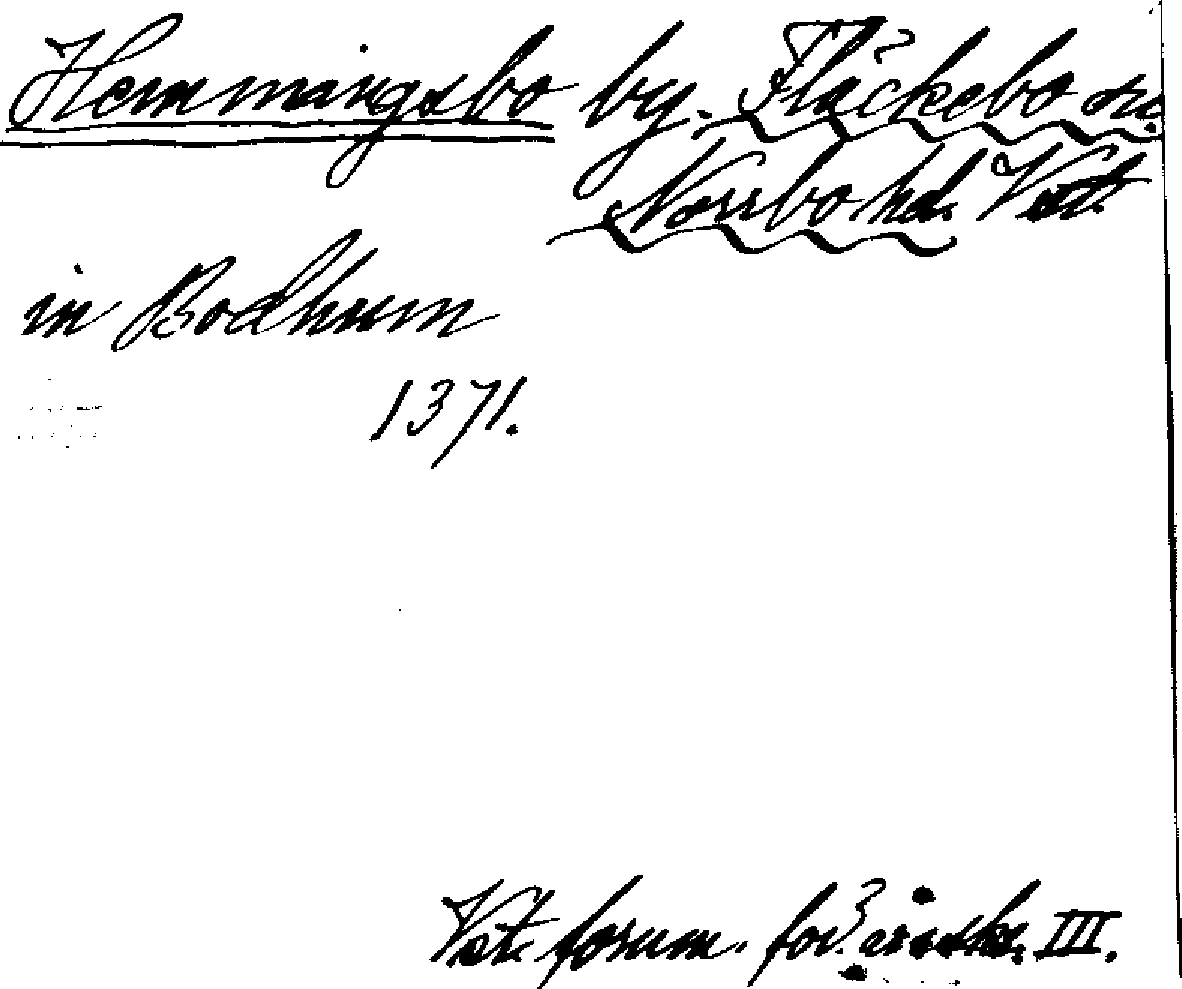 Hemmingsbo by. Fläckebo sn.
Norrbo hd. Vstl.
in Bodhum
1371.
Vstl. fornm. för. årsskr. III.